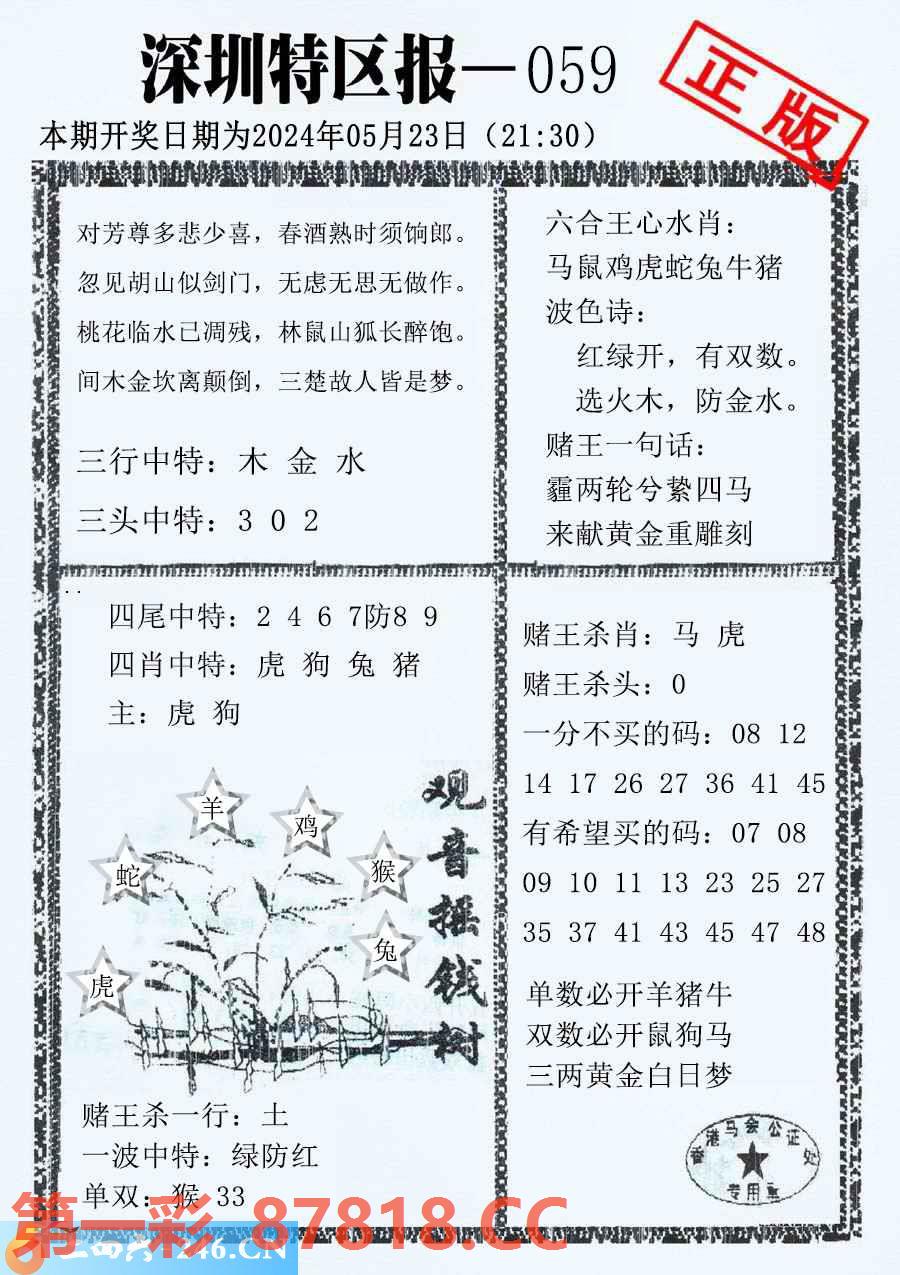 深圳特区报—059
正版
本期开奖日期为2024年05月23日（21:30）
对芳尊多悲少喜，春酒熟时须饷郎。
忽见胡山似剑门，无虑无思无做作。
桃花临水已凋残，林鼠山狐长醉饱。
间木金坎离颠倒，三楚故人皆是梦。
三行中特：木 金 水
三头中特：3 0 2
六合王心水肖：
马鼠鸡虎蛇兔牛猪
波色诗：
红绿开，有双数。
选火木，防金水。
赌王一句话：
霾两轮兮絷四马
来献黄金重雕刻
四尾中特：2 4 6 7防8 9
四肖中特：虎 狗 兔 猪
主：虎 狗
羊
鸡
蛇
猴
兔
虎
观音摇钱树
赌王杀一行：土
一波中特：绿防红
单双：猴 33
赌王杀肖：马 虎
赌王杀头：0
一分不买的码：08 12
14 17 26 27 36 41 45
有希望买的码：07 08
09 10 11 13 23 25 27
35 37 41 43 45 47 48
单数必开羊猪牛
双数必开鼠狗马
三两黄金白日梦
香港马会公证处
专用章
第一彩 87818.CC
246.CN